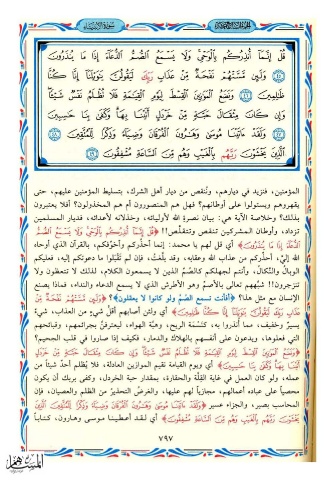 سورة الأنبياء
قُلْ إِنَّمَآ أُنذِرُكُم بِٱلْوَحْىِ وَلَا يَسْمَعُ ٱلصُّمُّ ٱلدُّعَآءَ إِذَا مَا يُنذَرُونَ
٤٥ وَلَئِن مَّسَّتْهُمْ نَفْحَةٌ مِّنْ عَذَابِ رَبِّكَ لَيَقُولُنَّ يَٰوَيْلَنَآ إِنَّا كُنَّا
ظَٰلِمِينَ ٤٦ وَنَضَعُ ٱلْمَوَٰزِينَ ٱلْقِسْطَ لِيَوْمِ ٱلْقِيَٰمَةِ فَلَا تُظْلَمُ نَفْسٌ شَيْـًٔا
وَإِن كَانَ مِثْقَالَ حَبَّةٍ مِّنْ خَرْدَلٍ أَتَيْنَا بِهَا وَكَفَىٰ بِنَا حَٰسِبِينَ
٤٧ وَلَقَدْ ءَاتَيْنَا مُوسَىٰ وَهَٰرُونَ ٱلْفُرْقَانَ وَضِيَآءً وَذِكْرًا لِّلْمُتَّقِينَ ٤٨
ٱلَّذِينَ يَخْشَوْنَ رَبَّهُم بِٱلْغَيْبِ وَهُم مِّنَ ٱلسَّاعَةِ مُشْفِقُونَ ٤٩
المؤمنين، فنزيد في ديارهم، وتُنقص من ديار أهل الشرك، بتسليط المؤمنين عليهم، حتى
يقهروهم ويستولوا على أوطانهم؟ فهل هم المنصورون أم هم المخذولون؟ أفلا يعتبرون
بذلك؟ وخلاصة الآية هي: بيان نصرة الله لأوليائه، وخذلانه لأعدائه، فديار المسلمين
تزداد، وأوطان المشركين تنقص وتتقلَّص!! ﴿قُلْ إِنَّمَآ أُنذِرُكُم بِٱلْوَحْىِ وَلَا يَسْمَعُ ٱلصُّمُّ
ٱلدُّعَآءَ إِذَا مَا يُنذَرُونَ﴾ أي قل لهم يا محمد: إنما أحذِّركم وأخوِّفكم، بالقرآن الذي أوحاه
الله إليَّ، أحذركم من عذاب الله وعقابه، وقد بلَّغتُ، فإن لم تَقْبلوا ما دعوتكم إليه، فعليكم
الوبالُ والنَّكالُ، وأنتم لجهلكم كالصُّمِّ الذين لا يسمعون الكلام، لذلك لا تتعظون ولا
تنزجرون!! شبَّههم تعالى بالأصم وهو الأطرش الذي لا يسمع الدعاء والنداء، فماذا يصنع
الإنسان مع مثل هذا؟ ﴿أفأنت تسمع الصُّمَّ ولو كانوا لا يعقلون﴾؟ ﴿وَلَئِن مَّسَّتْهُمْ نَفْحَةٌ مِّنْ
عَذَابِ رَبِّكَ لَيَقُولُنَّ يَٰوَيْلَنَآ إِنَّا كُنَّا ظَٰلِمِينَ﴾ أي ولئن أصابهم أقلُّ شيءٍ من العذاب، شيءٌ
يسيرٌ وخفيف، مما أُنذروا به، كنَسْمة الريح، وهبَّة الهواء، ليعترفنَّ بجرائمهم، وقبائحهم
التي فعلوها، ويدعون على أنفسهم بالهلاك والدمار، فكيف إذا صاروا في قلب الجحيم؟
﴿وَنَضَعُ ٱلْمَوَٰزِينَ ٱلْقِسْطَ لِيَوْمِ ٱلْقِيَٰمَةِ فَلَا تُظْلَمُ نَفْسٌ شَيْـًٔا وَإِن كَانَ مِثْقَالَ حَبَّةٍ مِّنْ خَرْدَلٍ
أَتَيْنَا بِهَا وَكَفَىٰ بِنَا حَٰسِبِينَ﴾ أي ويوم القيامة نقيم الموازين العادلة، فلا يُظلم أحدٌ شيئاً من
عمله، ولو كان العمل في غاية القِلَّة والحقارة، بمقدار حبة الخردل، وكفى بربك أن يكون
محصياً على عباده أعمالهم، مجازياً لهم عليها، والغرضُ التحذيرُ من الظلم والعصيان، فإن
المحاسب بصير، والجزاء عسير ﴿وَلَقَدْ ءَاتَيْنَا مُوسَىٰ وَهَٰرُونَ ٱلْفُرْقَانَ وَضِيَآءً وَذِكْرًا لِّلْمُتَّقِينَ ٱلَّذِينَ
يَخْشَوْنَ رَبَّهُم بِٱلْغَيْبِ وَهُم مِّنَ ٱلسَّاعَةِ مُشْفِقُونَ﴾ أي لقد أعطينا موسى وهارون، كتاباً
٧٩٧